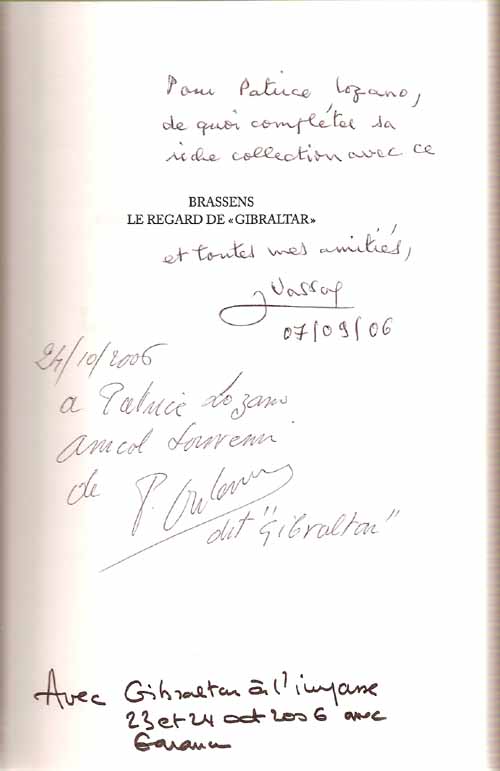 Pour Patrice Lozano,
de quoi compléter sa
riche collection avec ce
BRASSENS
LE REGARD DE «GIBRALTAR»
et toutes mes amitiés,
J Vassal
07/09/06
24/10/2006
a Patrice Lozano
amical Souvenir
de P.
dit "Gibraltar"
Avec Gibraltar à l'impasse
23 et 24 oct 2006 avec